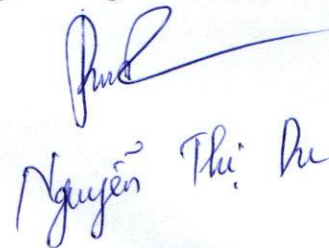 Nguyễn Thị Du